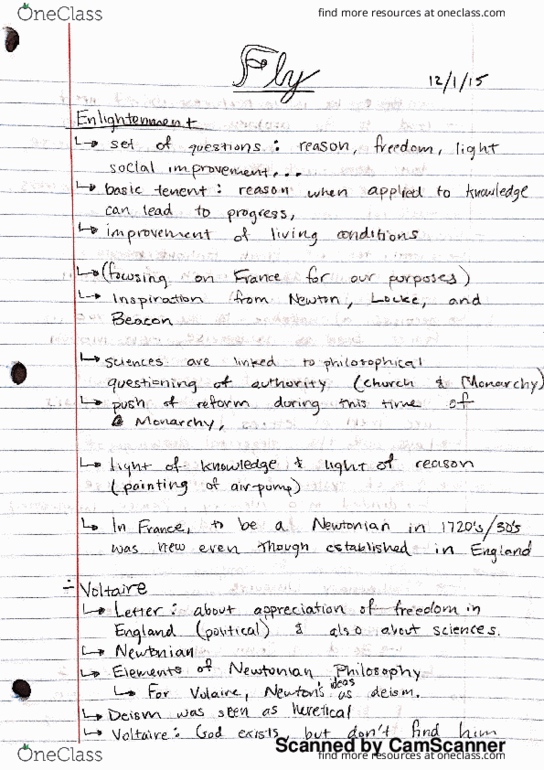 OneClass
find more resources at oneclass.com
Fly
12/1/15
Enlightenment
↳ set of questions : reason, freedom, light
social improvement...
↳ basic tenent : reason when applied to knowledge
can lead to progress,
↳ improvement of living conditions
↳ (focusing on France for our purposes)
↳ Inspiration from Newton, Locke, and
Beacon
↳ sciences are linked to philosophical
questioning of authority (church & Monarchy)
↳ push of reform during this time of
Monarchy,
↳ light of knowledge & light of reason
(painting of air-pump)
↳ In France, to be a Newtonian in 1720's/30's
was new even though established in England
÷ Voltaire
↳ Letter : about appreciation of freedom in
England (political) & also about sciences.
↳ Newtonian
↳ Elements of Newtonian Philosophy
↳ For Volaire, Newton's ideas as deism.
↳ Deism was seen as heretical
↳ Voltaire : God exists, but don't find him
Scanned by CamScanner
OneClass
find more resources at oneclass.com